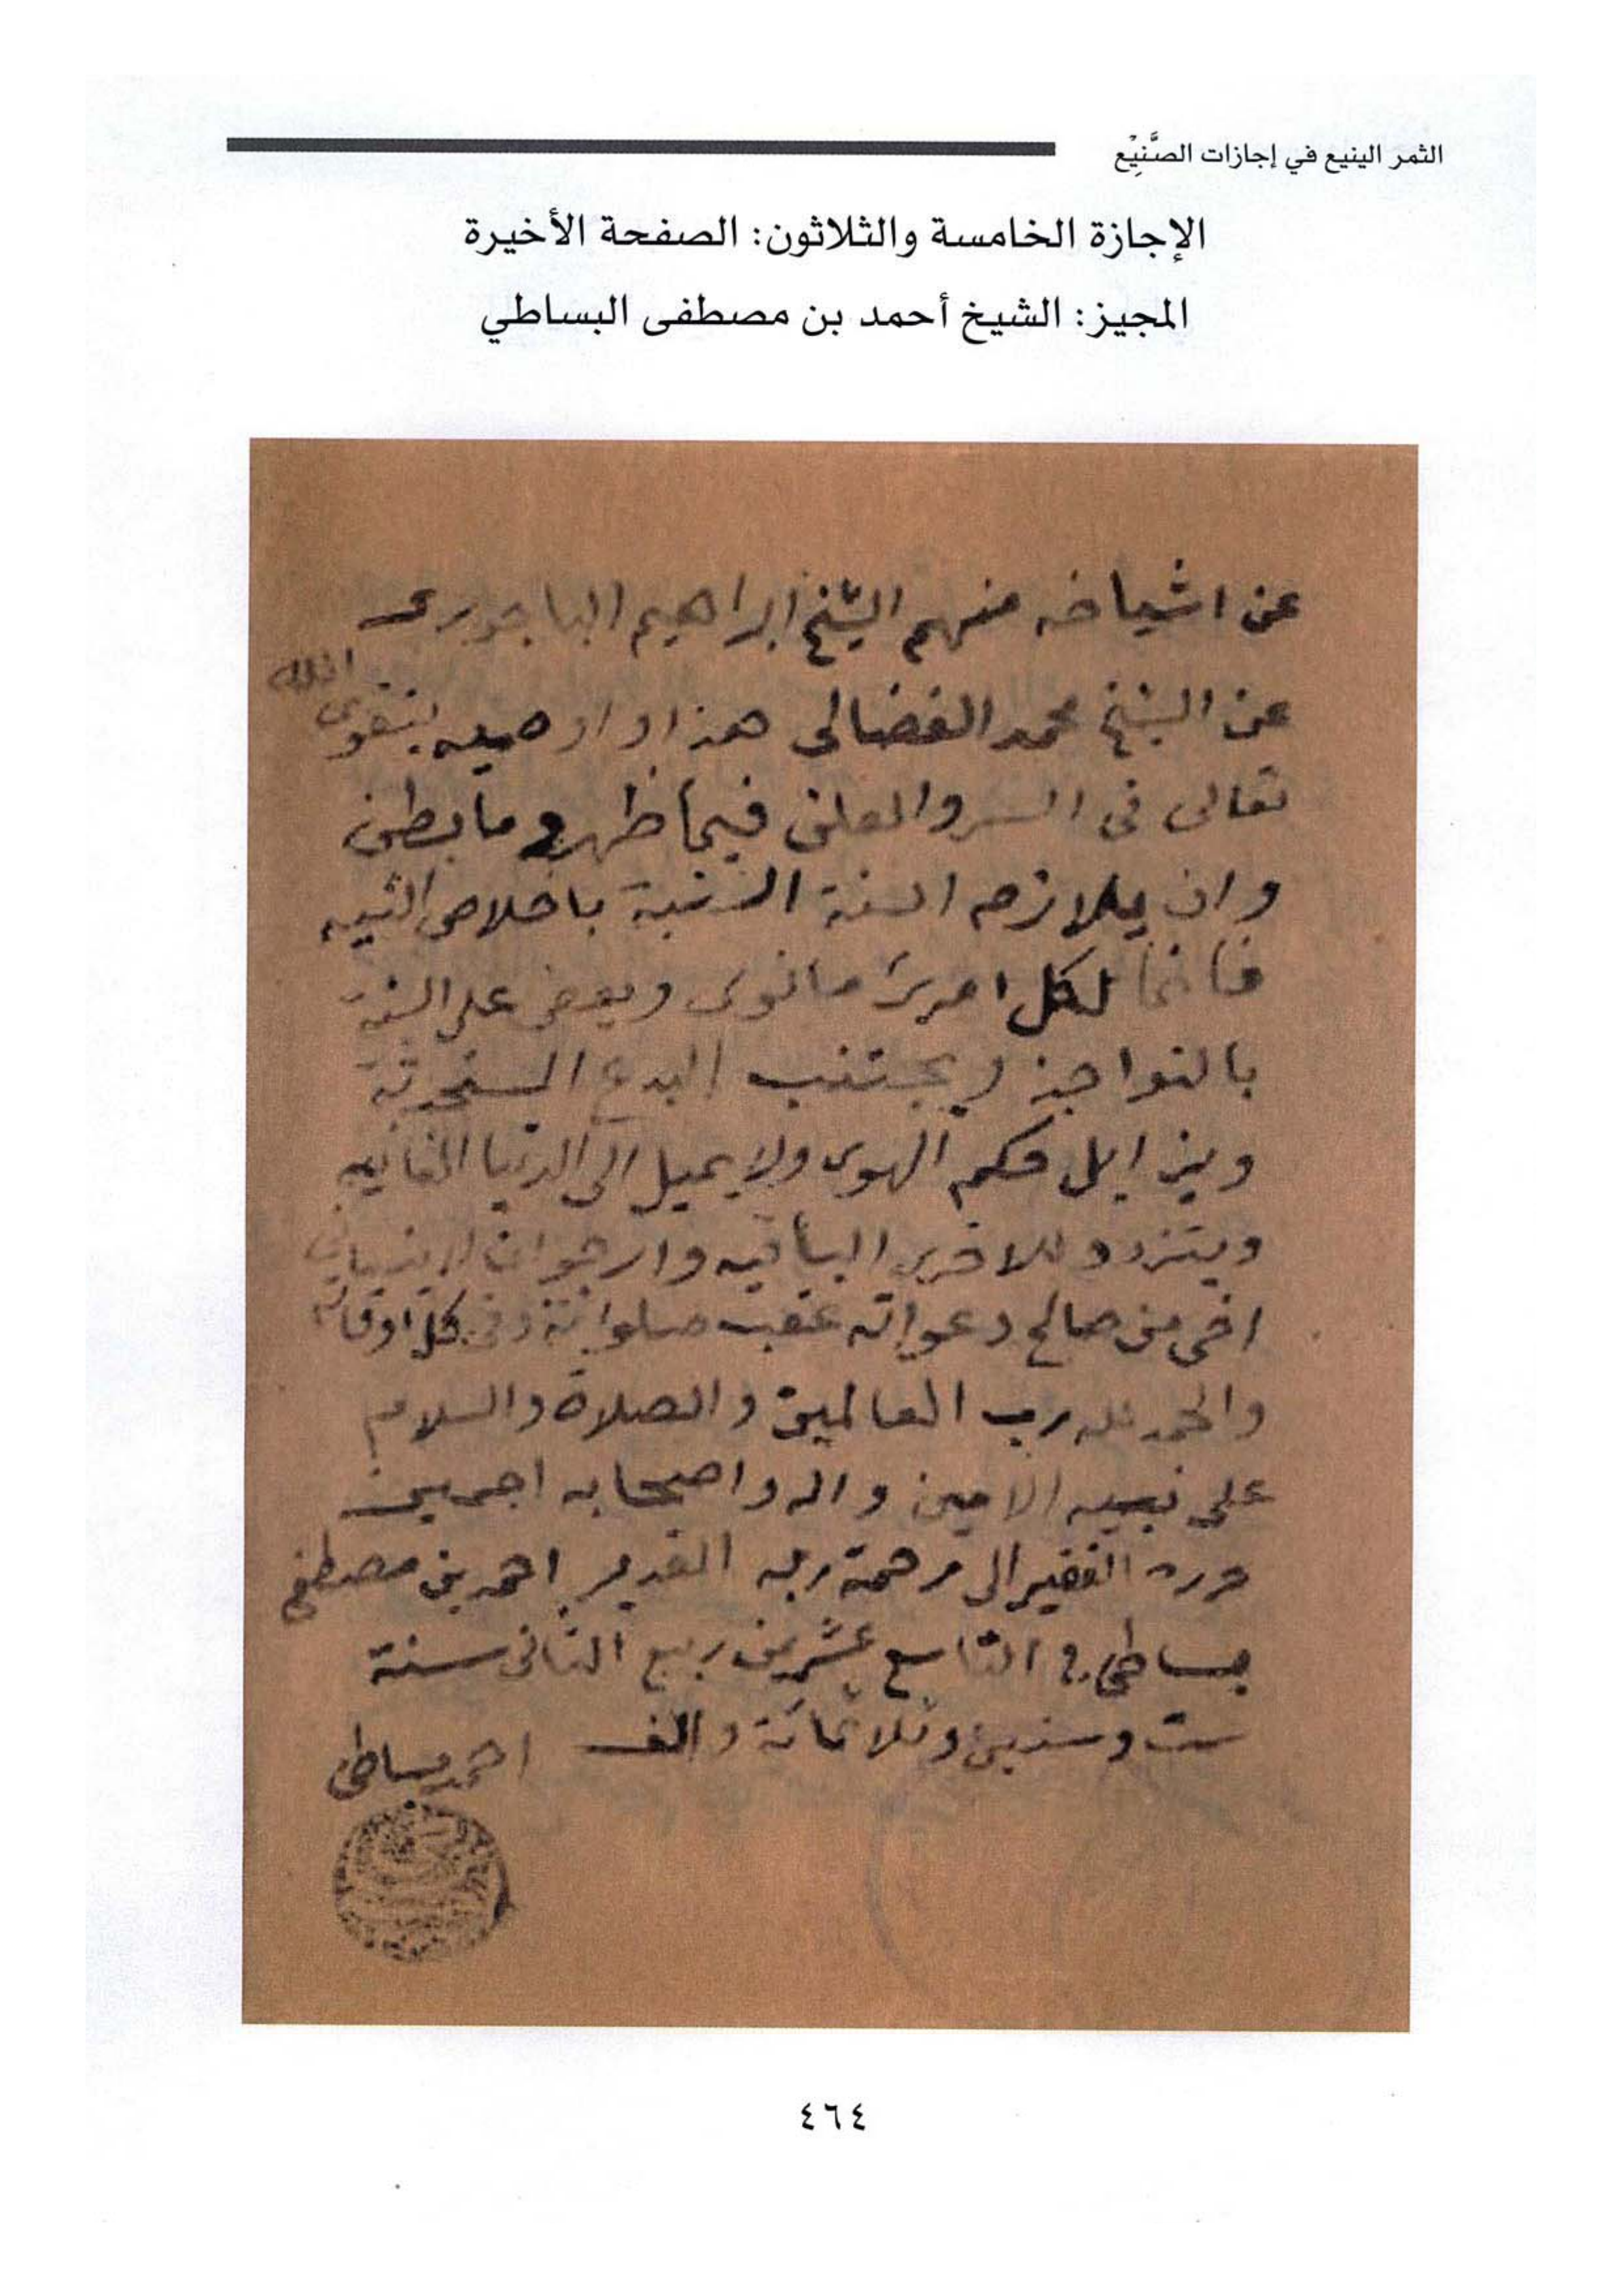 الثمر الينيع في إجازات الصَّنِيْع
الإجازة الخامسة والثلاثون: الصفحة الأخيرة
المجيز: الشيخ أحمد بن مصطفى البساطي
عن اشياخه منهم الشيخ ابراهيم الباجورى
عن الشيخ محمد الفضالى هذا واوصيه بتقوى الله
تعالى فى السر والعلن فيما ظهر وما بطن
وان يلازم السنة السنية باخلاص النيه
فانما لكل امرئ ما نوى ويعض على السنة
بالنواجذ ويجتنب البدع المستحدثة
ويزايل حكم الهوى ولا يميل الى الدنيا الفانيه
ويتزود للاخرى الباقيه وارجو ان لا ينسانى
اخى من صالح دعواته عقب صلواته وفى كل اوقاته
والحمد لله رب العالمين والصلاة والسلام
على نبيه الامين واله واصحابه اجمعين
حرره الفقير الى رحمة ربه القدير احمد بن مصطفى
بساطى فى التاسع عشر من ربيع الثانى سنة
ست وستين وثلاثمائة والف احمد بساطى
٤٦٤